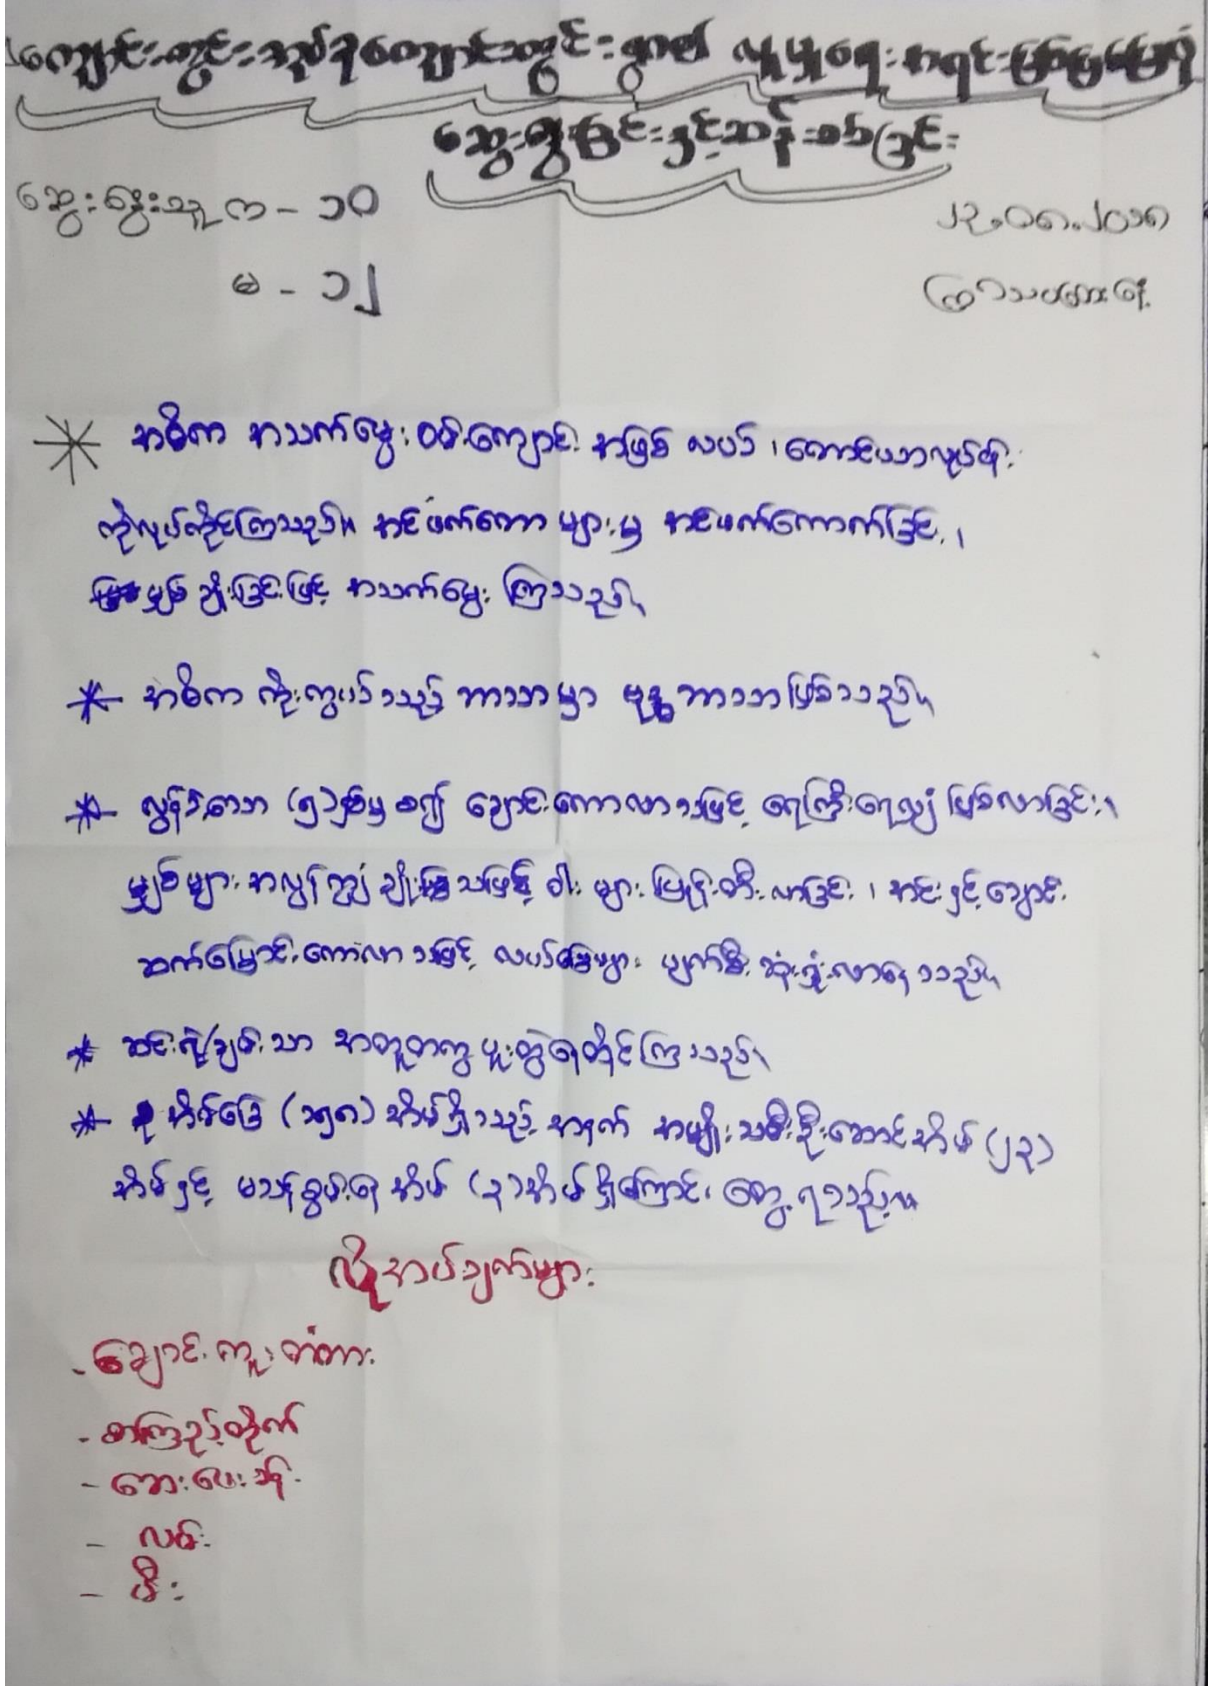 ကျောင်းတွင်း လူမှုရေးအရင်းအမြစ်
ဆွေးနွေးခြင်းနှင့်ဆန်းစစ်ခြင်း
ဆွေးနွေးသူ ကျ - ၁၀
မ - ၁၂
၂၃.၀၈.၂၀၁၈
ကြာသပတေးနေ့
* အဓိက အသက်မွေးဝမ်းကျောင်း အဖြစ် လယ်၊ တောင်ယာလုပ်ငန်း
ကိုလုပ်ကိုင်ကြသည်။ အင်ဖက်တော များမှ အင်ဖက်ကောက်ခြင်း၊
မျှစ်ချိုးခြင်းဖြင့် အသက်မွေး ကြသည်။
* အဓိက ကိုးကွယ်သည့် ဘာသာမှာ ဗုဒ္ဓဘာသာဖြစ်သည်။
* လွန်ခဲ့သော (၅)နှစ်မှ စ၍ ချောင်းကောလာသဖြင့် ရေကြီးရေလျှံ ဖြစ်လာခြင်း၊
မျှစ်များ အလွန်အကျွံ ချိုးသဖြင့် ဝါး များ ပြုန်းတီးလာခြင်း၊ အင်းနှင့်ချောင်း
ဆက်မြောင်းကောလာသဖြင့် လယ်မြေများ ပျက်စီး ဆုံးရှုံးလာနေသည်။
* ဆင်းရဲ/ချမ်းသာ အတူတကွ ပူးတွဲနေထိုင်ကြသည်။
* အိမ်ခြေ (၁၅၈) အိမ်ရှိသည့် အနက် အမျိုးသမီးဦးဆောင်အိမ် (၂၃)
အိမ်နှင့် မသန်စွမ်းရှိအိမ် (၃)အိမ်ရှိကြောင်း တွေ့ရသည်။
လိုအပ်ချက်များ
- ချောင်းကူးတံတား
- စာကြည့်တိုက်
- ဆေးပေးခန်း
- လမ်း
- မီး